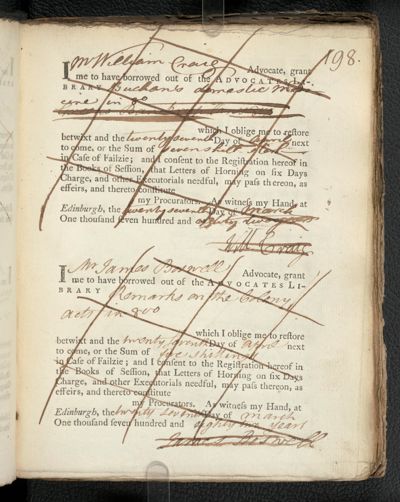 198.
I Mr William Craig Advocate, grant
me to have borrowed out of the ADVOCATES LI-
BRARY Buchan's domestic Medi
cine in 8o
which I oblige me to restore
betwixt and the twenty seventh Day of next
to come, or the Sum of seven shill
in Case of Failzie; and I consent to the Registration hereof in
the Books of Session, that Letters of Horning on six Days
Charge, and other Executorials needful, may pass thereon, as
effeirs, and thereto constitute
my Procurators. As witness my Hand, at
Edinburgh, the twenty seventh Day of March
One thousand seven hundred and eighty two
Will Craig
I Mr James Boswell Advocate, grant
me to have borrowed out of the ADVOCATES LI-
BRARY Remarks on the Colony
acts in 8vo
which I oblige me to restore
betwixt and the twenty seventh Day of April next
to come, or the Sum of five shillings
in Case of Failzie; and I consent to the Registration hereof in
the Books of Session, that Letters of Horning on six Days
Charge, and other Executorials needful, may pass thereon, as
effeirs, and thereto constitute
my Procurators. As witness my Hand, at
Edinburgh, the twenty seventh Day of March
One thousand seven hundred and eighty two years
James Boswell